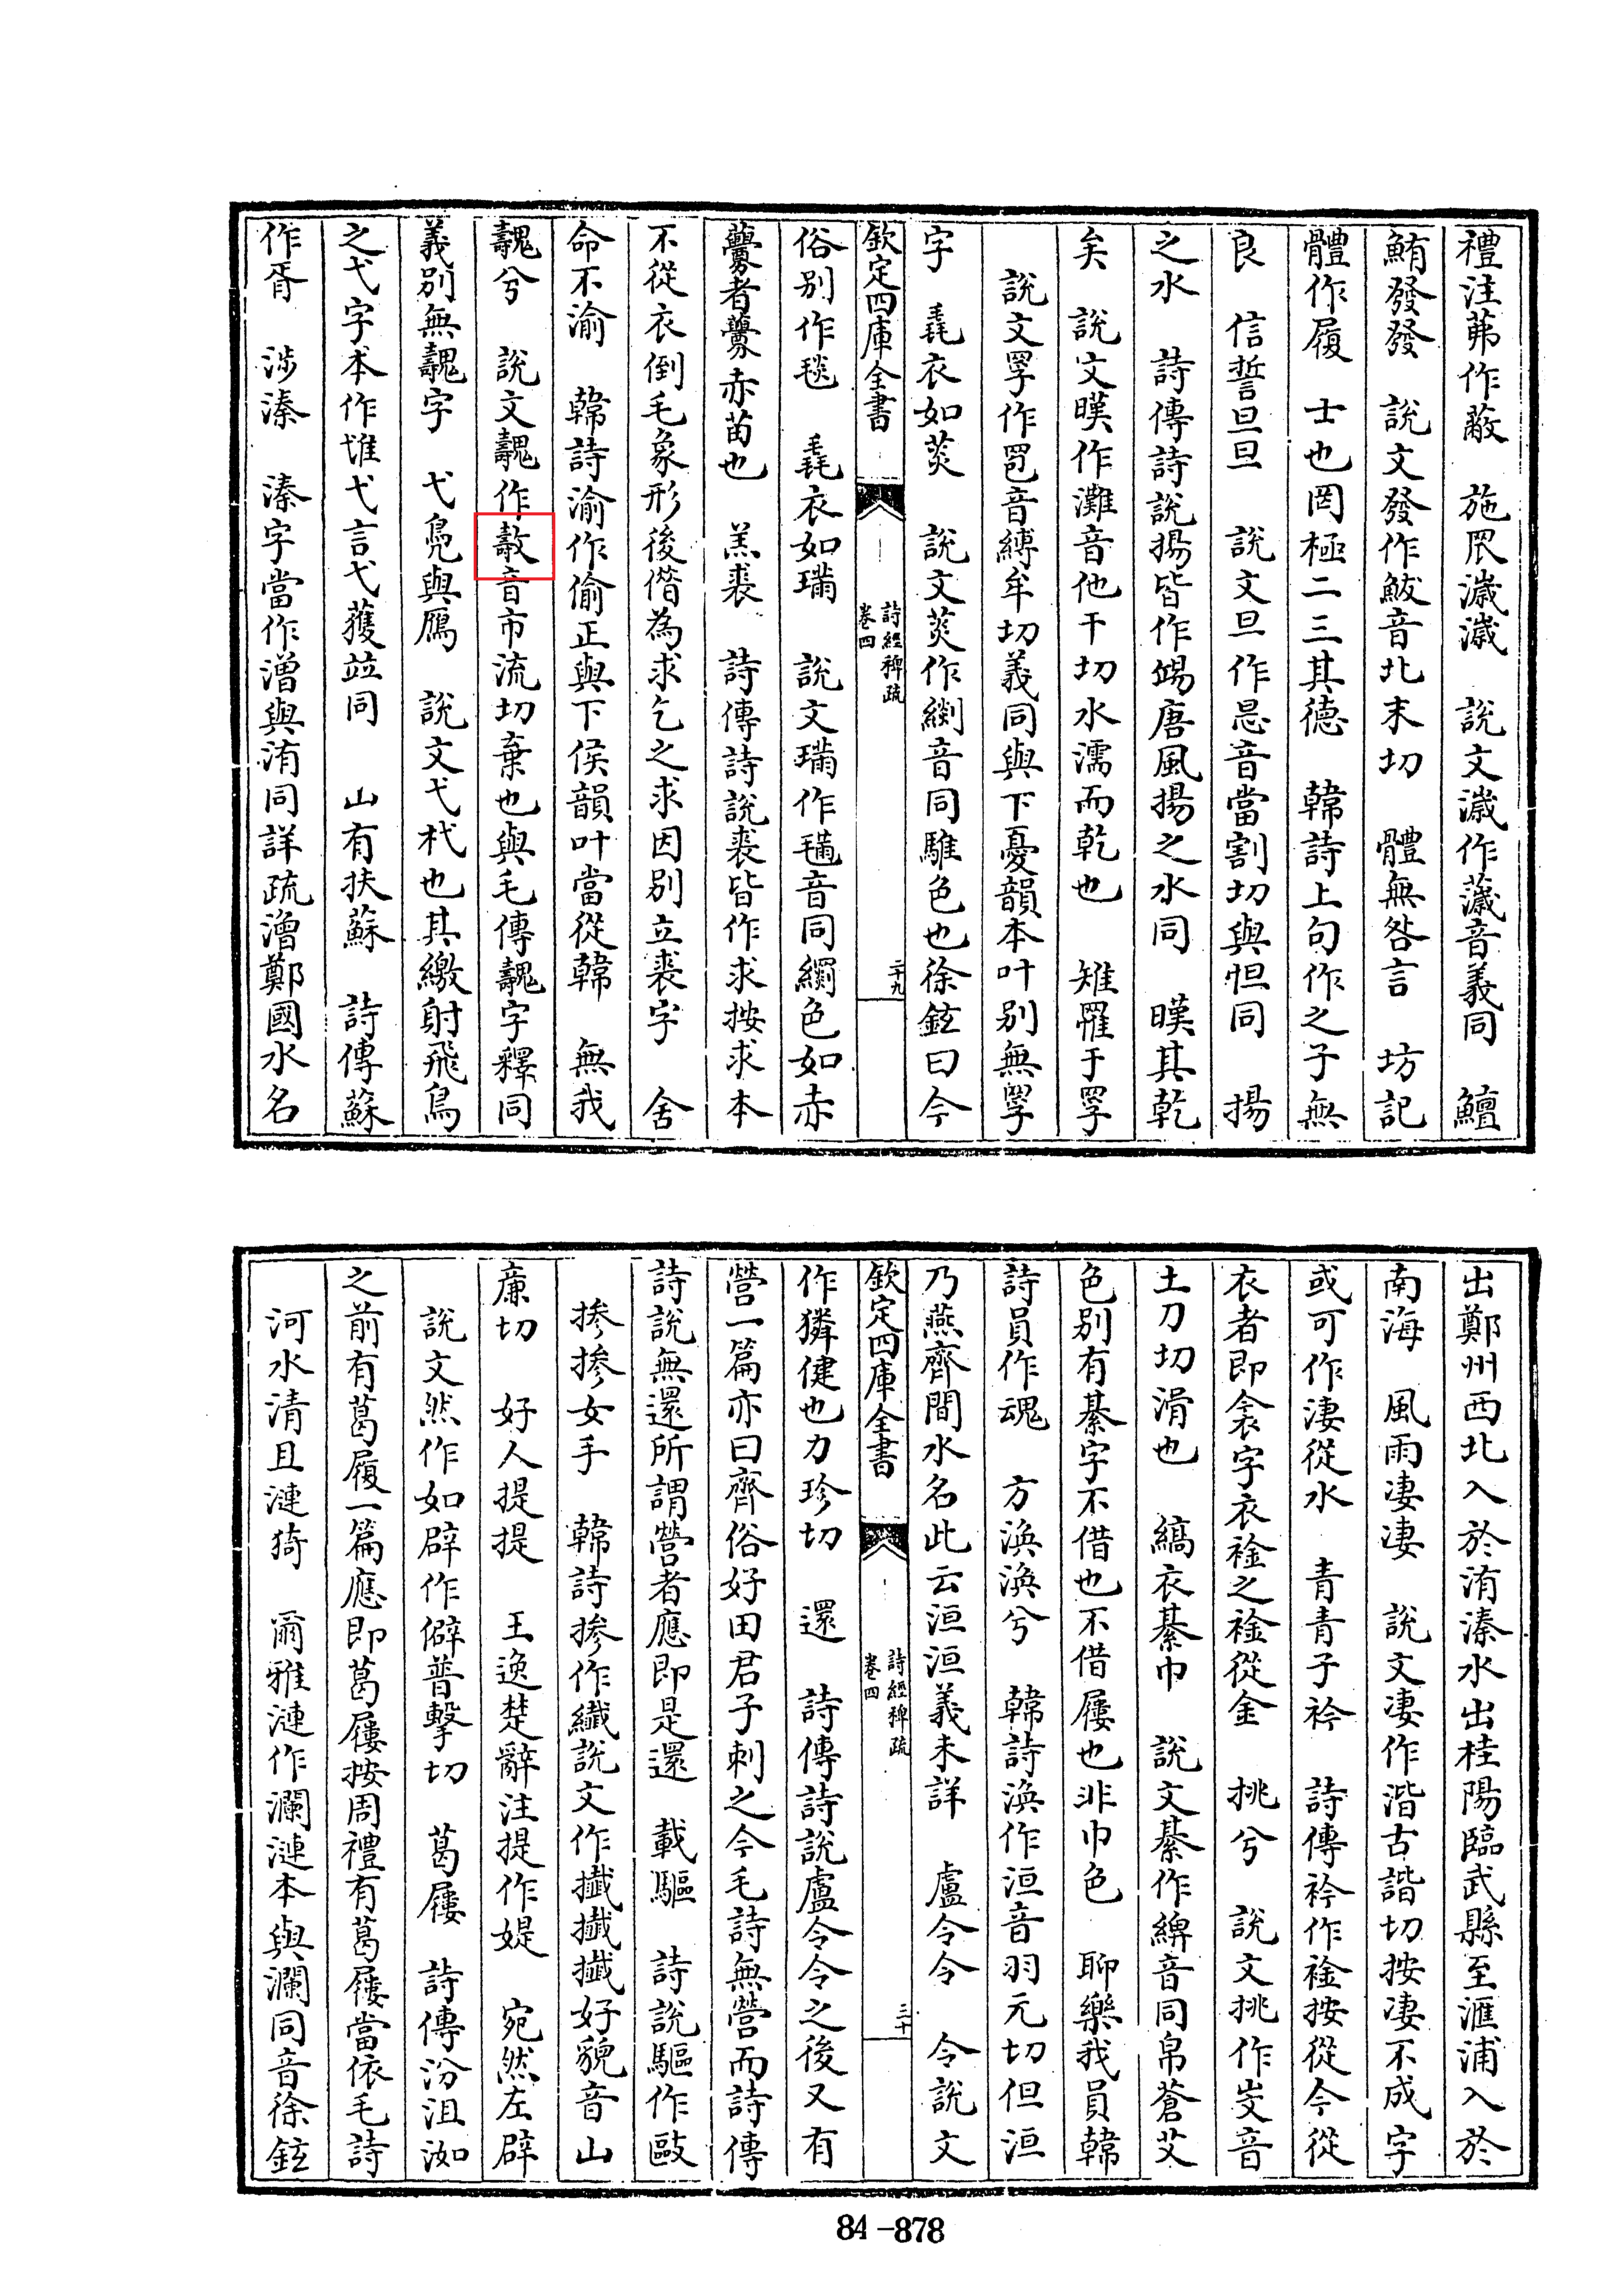 禮注茀作蔽　施罛濊濊　說文濊作薉音義同　鱣
鮪發發　說文發作鮁音北末切　體無咎言　坊記
體作履　士也罔極二三其德　韓詩上句作之子無
良　信誓旦旦　說文旦作𢘇音當割切與怛同　揚
之水　詩傳詩說揚皆作煬唐風揚之水同　暵其乾
矣　說文暵作灘音他干切水濡而乾也　雉罹于罦
說文罦作雹音縛牟切義同與下憂韻本叶别無罦
字　毳衣如菼　說文菼作緂音同騅色也徐鉉曰今
欽定四庫全書
詩經稗疏
卷四
二十九
俗别作毯　毳衣如璊　說文璊作𣯩音同𦇚色如赤
虋者虋赤苗也　羔裘　詩傳詩說裘皆作求按求本
不從衣倒毛象形後借為求乞之求因别立裘字　舍
命不渝　韓詩渝作偷正與下侯韻叶當從韓　無我
魗兮　說文魗作𢿢音市流切棄也與毛傳魗字釋同
義别無魗字　弋鳧與鴈　說文弋杙也其繳射飛鳥
之弋字本作隿弋言弋獲竝同　山有扶蘇　詩傳蘇
作胥　涉溱　溱字當作潧與洧同詳疏潧鄭國水名
出鄭州西北入於洧溱水出桂陽臨武縣至滙浦入於
南海　風雨淒淒　說文淒作湝古諧切按淒不成字
或可作凄從水　青青子衿　詩傳衿作襘按從今從
衣者即衾字衣襘之襘從金　挑兮　說文挑作㞮音
土刀切滑也　縞衣綦巾　說文綦作綥音同帛蒼艾
色别有綦字不借也不借屨也非巾色　聊樂我員韓
詩員作魂　方渙渙兮　韓詩渙作洹音羽元切但洹
乃燕齊間水名此云洹洹義未詳　盧令令　令說文
欽定四庫全書
詩經稗疏
卷四
三十
作獜健也力珍切　還　詩傳詩說盧令令之後又有
營一篇亦曰齊俗好田君子刺之今毛詩無營而詩傳
詩說無還所謂營者應即是還　載驅　詩說驅作敺
摻摻女手　韓詩摻作纎說文作攕攕攕好貌音山
廉切　好人提提　王逸楚辭注提作媞　宛然左辟
說文然作如辟作僻普擊切　葛屨　詩傳汾沮洳
之前有葛履一篇應即葛屨按周禮有葛屨當依毛詩
河水清且漣猗　爾雅漣作瀾漣本與瀾同音徐鉉
84-878